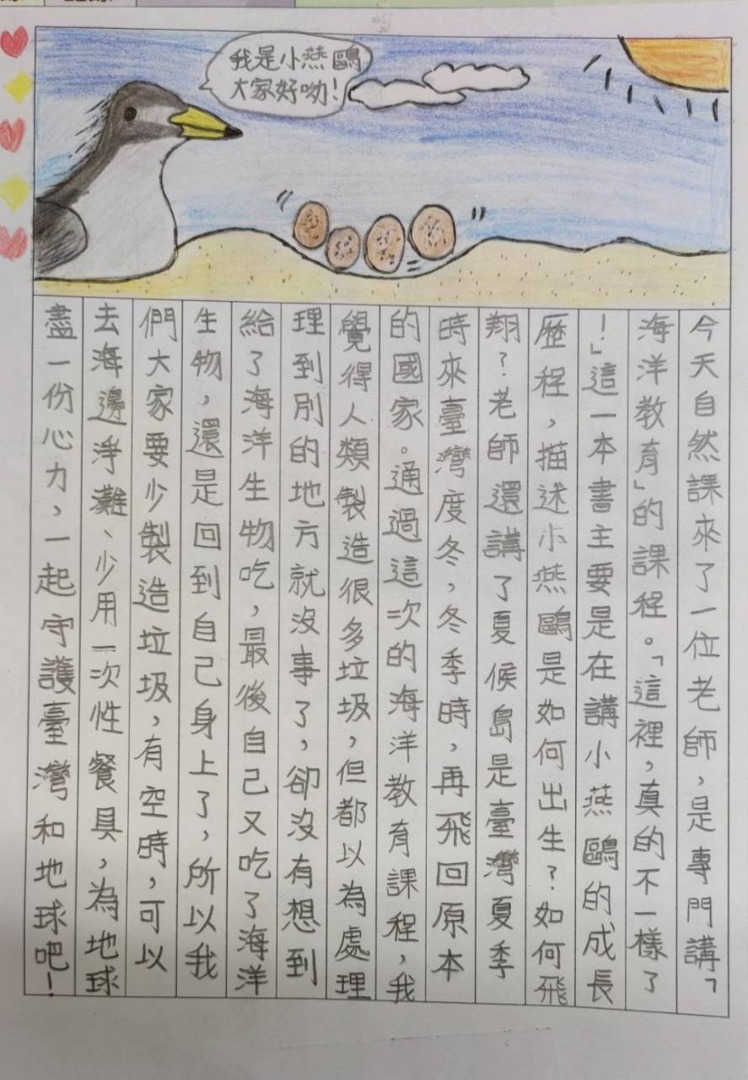 我是小燕鷗
大家好呦!
今天自然課來了一位老師,是專門講「
海洋教育」的課程。「這裡,真的不一樣了
!」這一本書主要是在講小燕鷗的成長
歷程,描述小燕鷗是如何出生?如何飛
翔?老師還講了夏候島是臺灣夏季
時來臺灣度冬,冬季時,再飛回原本
的國家。通過這次的海洋教育課程,我
覺得人類製造很多垃圾,但都以為處理
理到別的地方就沒事了,卻沒有想到
給了海洋生物吃,最後自己又吃了海洋
生物,還是回到自己身上了,所以我
們大家要少製造垃圾,有空時,可以
去海邊淨灘、少用一次性餐具,為地球
盡一份心力,一起守護臺灣和地球吧!